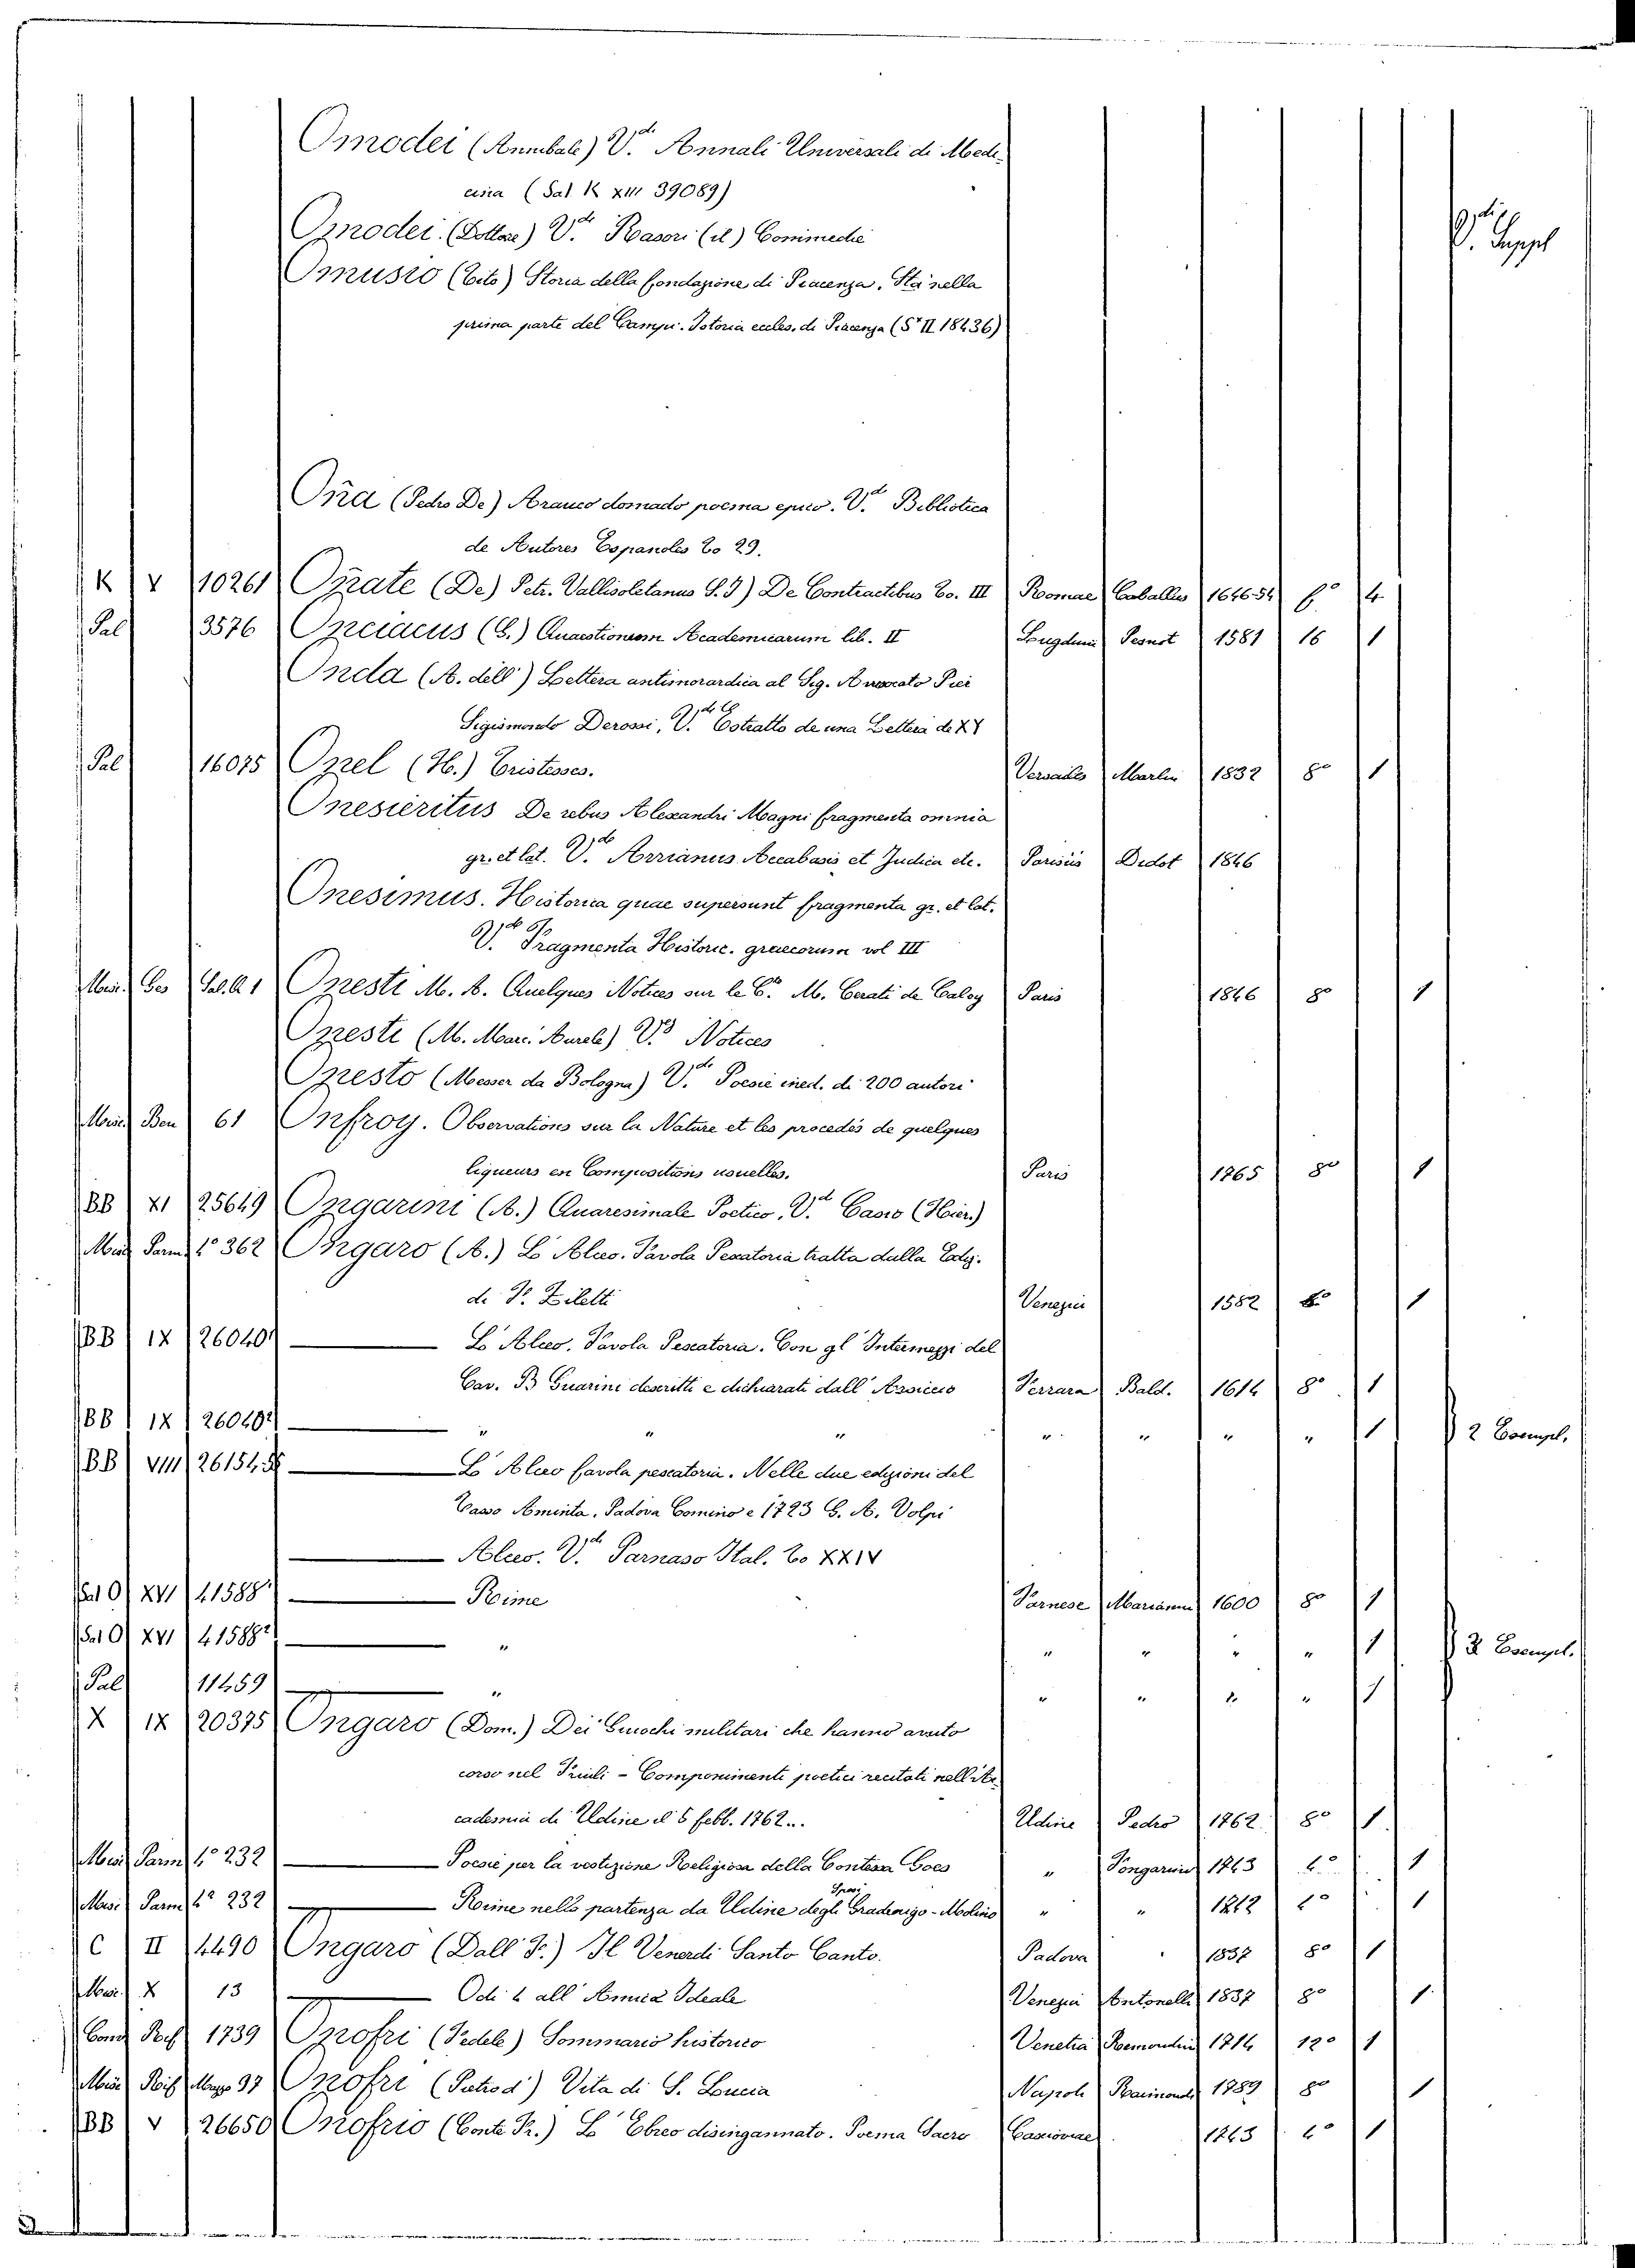 Omodei (Annibale) V.de Annali Universali di Medi-
cina (Sal K XIII 39089)
Omodei (Dottore) V.de Rasori (il) Commedie
V.di Suppl
Omusio (Tito) Storia della fondazione di Piacenza. Sta nella
prima parte del Campi. Istoria eccles. di Piacenza (S* II 18436)
Oña (Pedro De) Arauco domado poema epico. V.de Bibliotica
de Autores Espanoles To 29.
K V 10261 Oñate (De) Petr. Vallisoletanus S.J) De Contractibus To. III Romae Caballus 1646-54 fo 4
Pal 3576 Onciacus (G.) Quaestionum Academicarum lib. II Lugduni Pesnot 1581 16 1
Onda (A. dell') Lettera antimorardica al Sig. Avvocato Pier
Sigismondo Derossi, V.de Estratto de una Lettera de XV
Pal 16075 Onel (H.) Tristesses. Versailles Marlin 1832 8o 1
Onesicritus De rebus Alexandri Magni fragmenta omnia
gr. et lat. V.de Arrianus Anabasis et Indica etc. Parisiis Didot 1846
Onesimus. Historica quae supersunt fragmenta gr. et lat.
V.de Fragmenta Historic. graecorum vol III
Misc. Ces Sal. A 1 Onesti M. A. Quelques Notices sur le C.te M. Cerati de Calog Paris 1846 8o 1
Onesti (M. Marc. Aurele) V.s Notices
Onesto (Messer da Bologna) V.de Poesie ined. di 200 autori
Misc. Ben 61 Onfroy. Observations sur la Nature et les procedés de quelques
liqueurs en Compositions usuelles. Paris 1765 8o 1
BB XI 25649 Ongarini (A.) Quaresimale Poetico. V.d Casio (Hier.)
Misc Parm 4o 362 Ongaro (A.) L'Alceo. Favola Pescatoria tratta dalla Ediz.
di F. Ziletti Venezia 1582 1
BB IX 26040¹ — L'Alceo, Favola Pescatoria. Con gl'Intermezzi del
Cav. B Guarini descritti e dichiarati dall'Arsiccio Ferrara Bald. 1614 8o 1
BB IX 26040² — " " " " " " " 1 2 Esempl.
BB VIII 26154 — L'Alceo favola pescatoria. Nelle due edizioni del
Tasso Aminta, Padova Comino e 1723 G. A. Volpi
— Alceo. V.de Parnaso Ital. To XXIV
Sal O XVI 41588¹ — Rime Farnese Mariani 1600 8o 1
Sal O XVI 41588² — " " " " " 1 3 Esempl.
Pal 11459 — " " " " " 1
X IX 20375 Ongaro (Dom.) Dei Giuochi militari che hanno avuto
corso nel Friuli - Componimenti poetici recitati nell'Ac-
cademia di Udine il 5 febb. 1762... Udine Pedro 1762 8o 1
Misc Parm 4o 232 — Poesie per la vestizione Religiosa della Contessa Goes " Fongarini 1763 4o 1
Misc Parm 4o 232 — Rime nella partenza da Udine degli Sposi Gradenigo-Molino " " 4o 1
C II 4490 Ongaro (Dall' F.) Il Venerdi Santo Canto. Padova 1837 8o 1
Misc. X 13 — Odi 4 all'Amica Ideale Venezia Antonelli 1837 8o 1
Cond Rif 1739 Onofri (Fedele) Sommario historico Venetia Remondini 1714 12o 1
Misc Rif Mazzo 97 Onofri (Pietro d') Vita di S. Lucia Napoli Raimondi 1789 8o 1
BB V 26650 Onofrio (Conte Fr.) L'Ebreo disingannato. Poema Sacro 4o 1